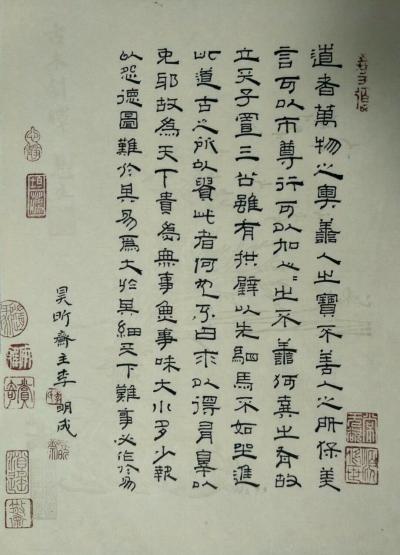 道者萬物之奧善人之寶不善人之所保美
言可以市尊行可以加人〻之不善何棄之有故
立天子置三公雖有拱璧以先駟馬不如坐進
此道古之所以貴此者何也不曰求以得有罪以
免耶故為天下貴為無事無事味大小多少報
以怨德圖難於其易為大於其細天下難事必作於易
昊昕齋主李明成